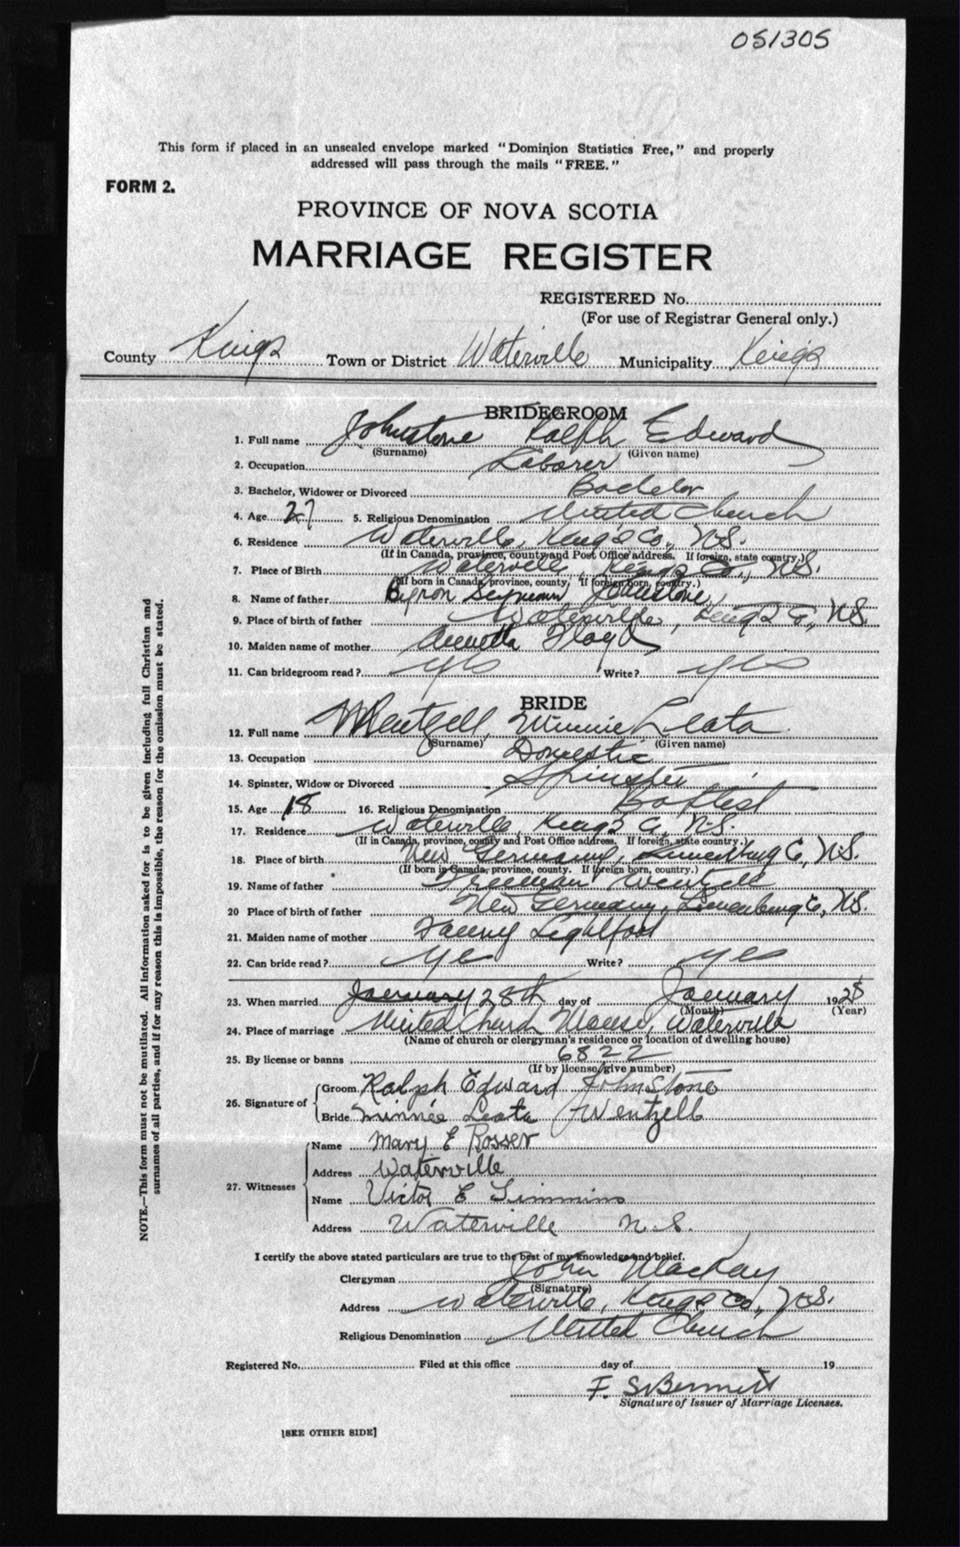 051305
This form if placed in an unsealed envelope marked "Dominion Statistics Free," and properly
addressed will pass through the mails "FREE."
FORM 2.
PROVINCE OF NOVA SCOTIA
MARRIAGE REGISTER
REGISTERED No.
(For use of Registrar General only.)
County Kings Town or District Waterville Municipality Kings
BRIDEGROOM
1. Full name Johnstone Ralph Edward
(Surname) (Given name)
2. Occupation Laborer
3. Bachelor, Widower or Divorced Bachelor
4. Age 27 5. Religious Denomination United Church
6. Residence Waterville, King's Co., N.S.
(If in Canada, province, county and Post Office address. If foreign, state country.)
7. Place of Birth Waterville, Kings Co., N.S.
(If born in Canada, province, county. If foreign born, country.)
8. Name of father Byron Seymour Johnstone
9. Place of birth of father Waterville, Kings Co, N.S.
10. Maiden name of mother Annetta Floyd
11. Can bridegroom read? yes Write? yes
BRIDE
12. Full name Wentzell, Minnie Leata
(Surname) (Given name)
13. Occupation Domestic
14. Spinster, Widow or Divorced Spinster
15. Age 18 16. Religious Denomination Baptist
17. Residence Waterville, Kings Co, N.S.
(If in Canada, province, county and Post Office address. If foreign, state country.)
18. Place of birth New Germany, Lunenburg Co, N.S.
(If born in Canada, province, county. If foreign born, country.)
19. Name of father Freeman Wentzell
20 Place of birth of father New Germany, Lunenburg Co, N.S.
21. Maiden name of mother Fanny Lightfoot
22. Can bride read? yes Write? yes
23. When married January 28th day of January 1928
(Month) (Year)
24. Place of marriage United Church Manse, Waterville
(Name of church or clergyman's residence or location of dwelling house)
25. By license or banns 6822
(If by license, give number)
26. Signature of Groom Ralph Edward Johnstone
Bride Minnie Leata Wentzell
27. Witnesses Name Mary E Rosser
Address Waterville
Name Victor E Timmins
Address Waterville N.S.
I certify the above stated particulars are true to the best of my knowledge and belief.
Clergyman John MacKay
(Signature)
Address Waterville, Kings Co., N.S.
Religious Denomination United Church
Registered No. Filed at this office day of 19
F. S.
Signature of Issuer of Marriage Licenses.
[SEE OTHER SIDE]
NOTE.—This form must not be mutilated. All information asked for is to be given including full Christian and
surnames of all parties, and if for any reason this is impossible, the reason for the omission must be stated.